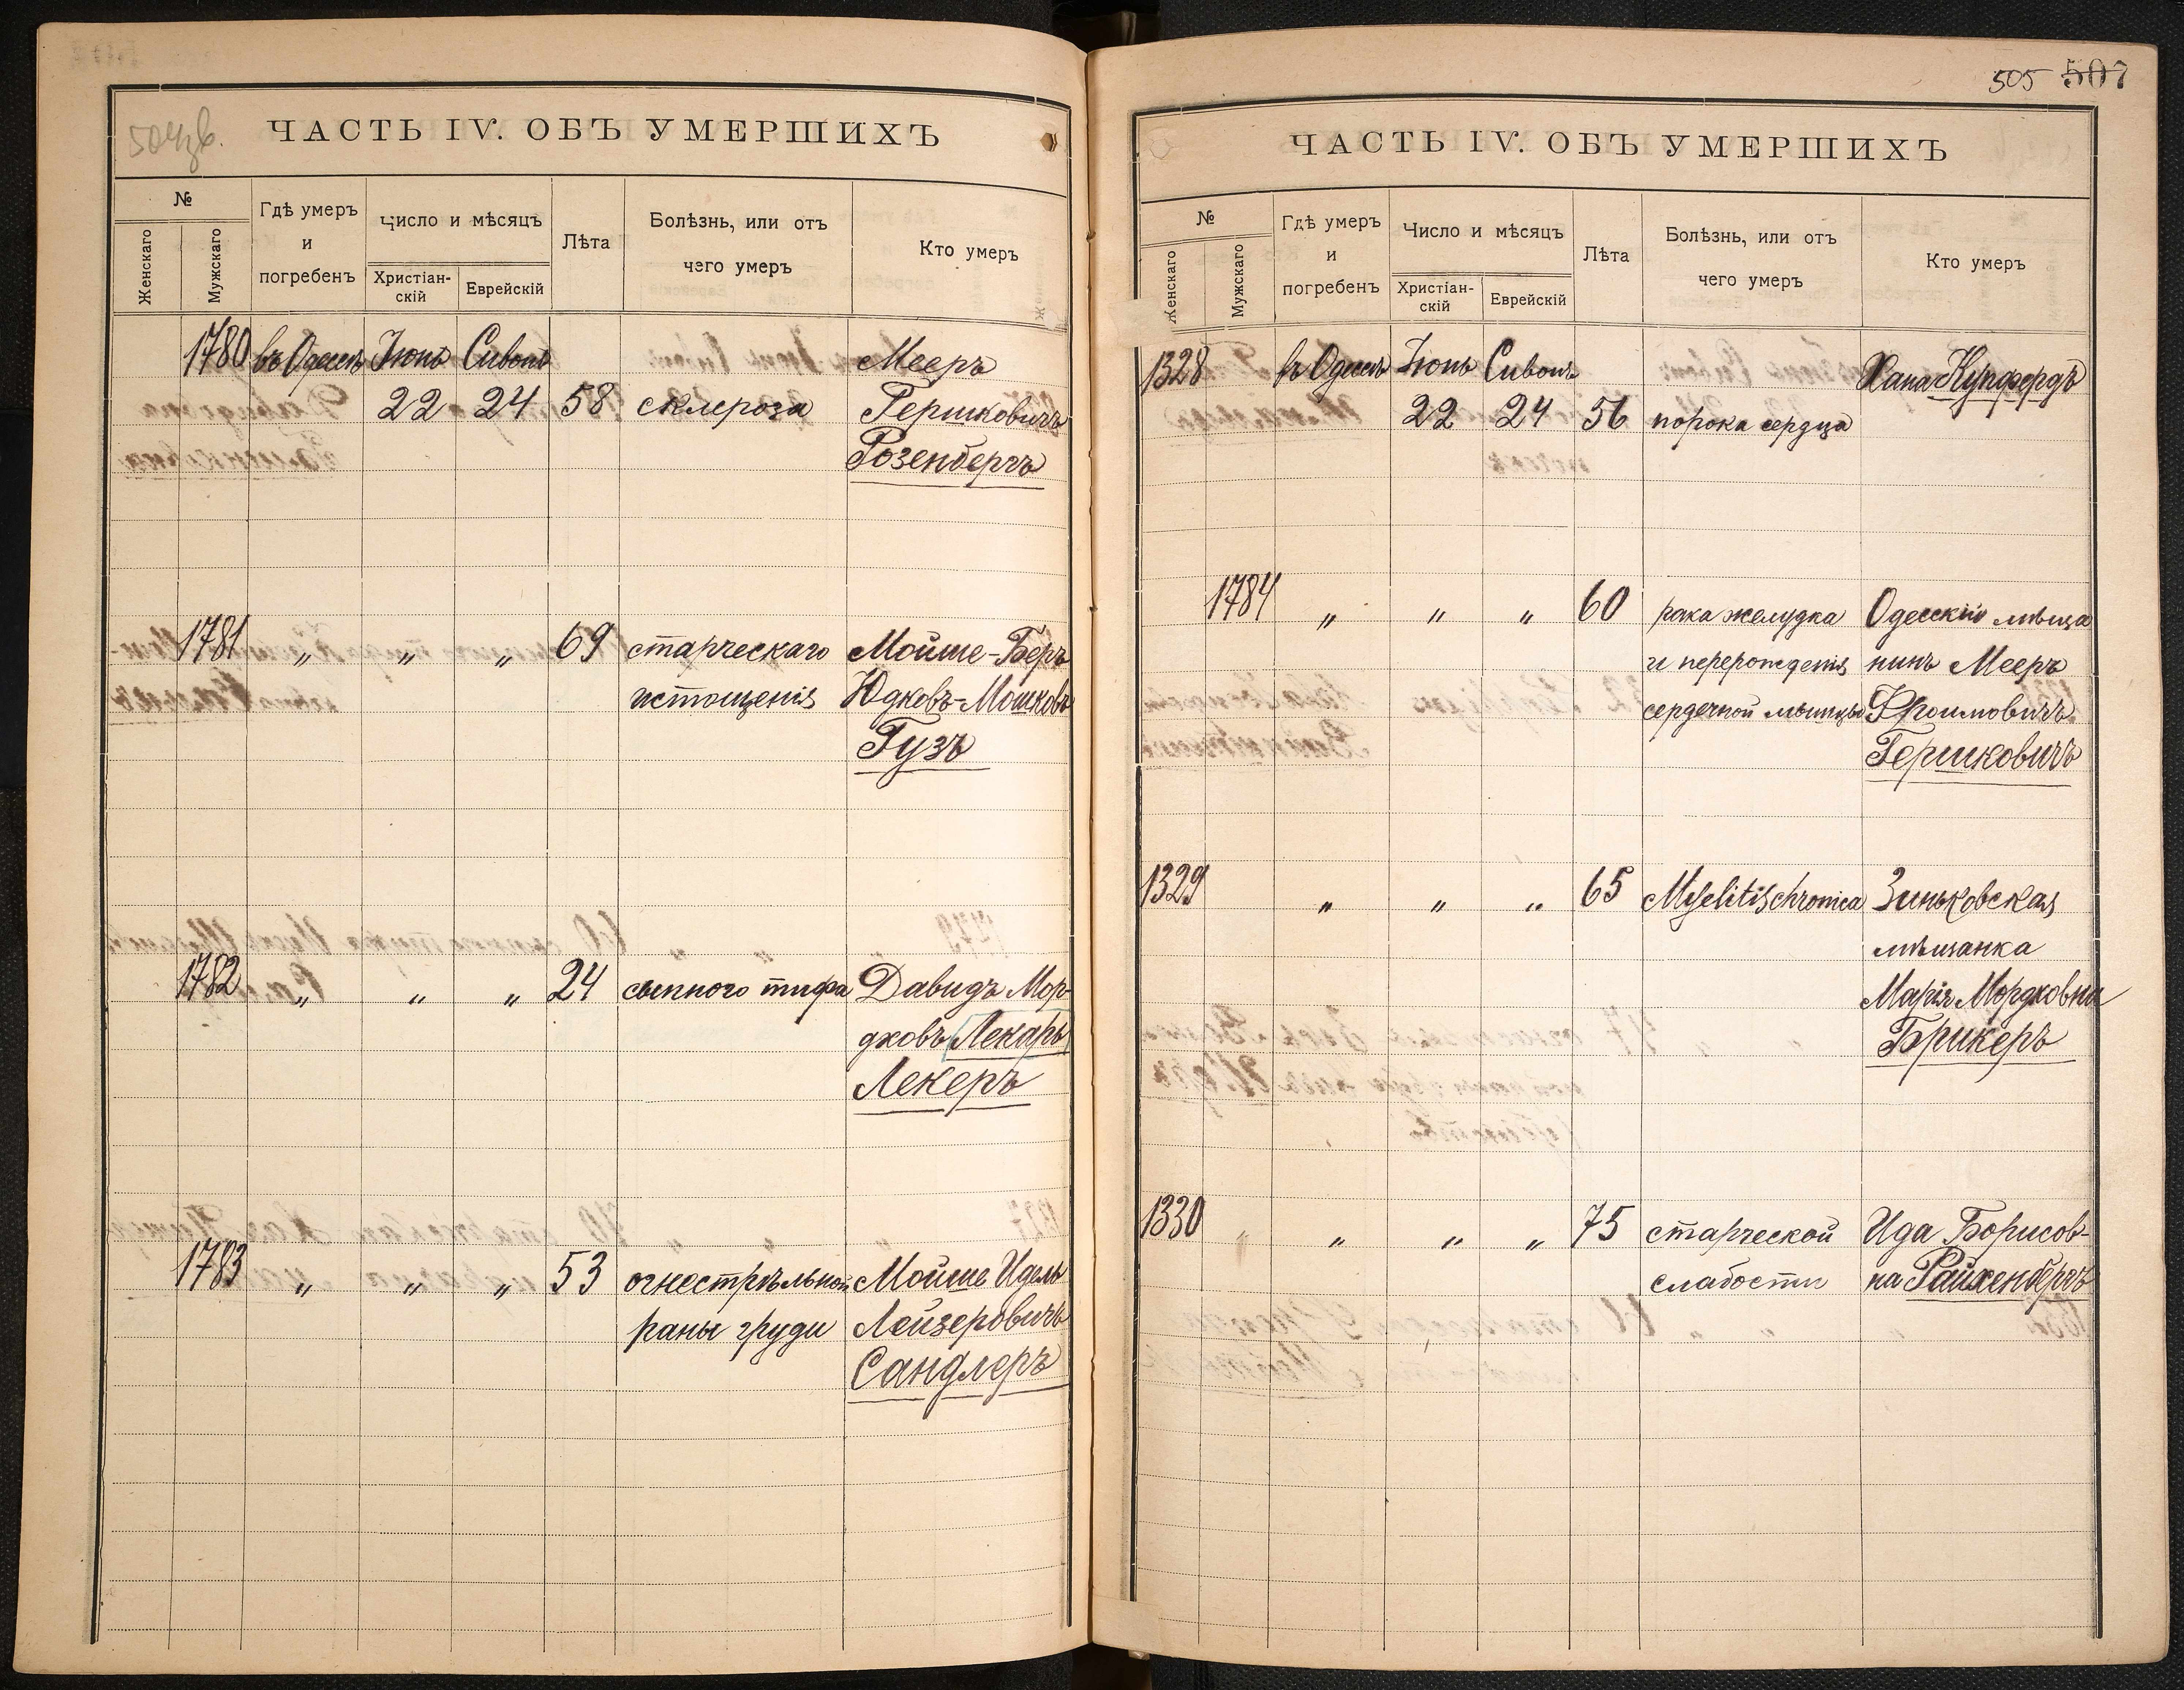 504 об.
ЧАСТЬ IV. ОБЪ УМЕРШИХЪ
№
Женскаго
Мужскаго
Гдѣ умеръ
и
погребенъ
Число и мѣсяцъ
Христіан-
скій
Еврейскій
Лѣта
Болѣзнь, или отъ
чего умеръ
Кто умеръ
1780 въ Одессѣ Іюнь Сивонъ Мееръ
22 24 58 склероза Гершковичъ
Розенбергъ
1781 „ „ „ 69 старческаго Мойше-Беръ
истощенія Юдковъ-Мошковъ
Гузъ
1782 „ „ „ 24 сыпного тифа Давидъ Мор-
дковъ Лекарь
Лекеръ
1783 „ „ „ 53 огнестрѣльной Мойше Идель
раны груди Лейзеровичъ
Сандлеръ
505 507
ЧАСТЬ IV. ОБЪ УМЕРШИХЪ
№
Женскаго
Мужскаго
Гдѣ умеръ
и
погребенъ
Число и мѣсяцъ
Христіан-
скій
Еврейскій
Лѣта
Болѣзнь, или отъ
чего умеръ
Кто умеръ
1328 въ Одессѣ Іюнь Сивонъ Хана Купфердъ
22 24 56 порока сердца
1784 „ „ „ 60 рака желудка Одесскій мѣща
и перерожденія нинъ Мееръ
сердечной мышцы Фроимовичъ
Гершковичъ
1329 „ „ „ 65 Myelitis chronica Зиньковская
мѣщанка
Марія Мордковна
Брикеръ
1330 „ „ „ „ 75 старческой Ида Борисов-
слабости на Райхенбергъ